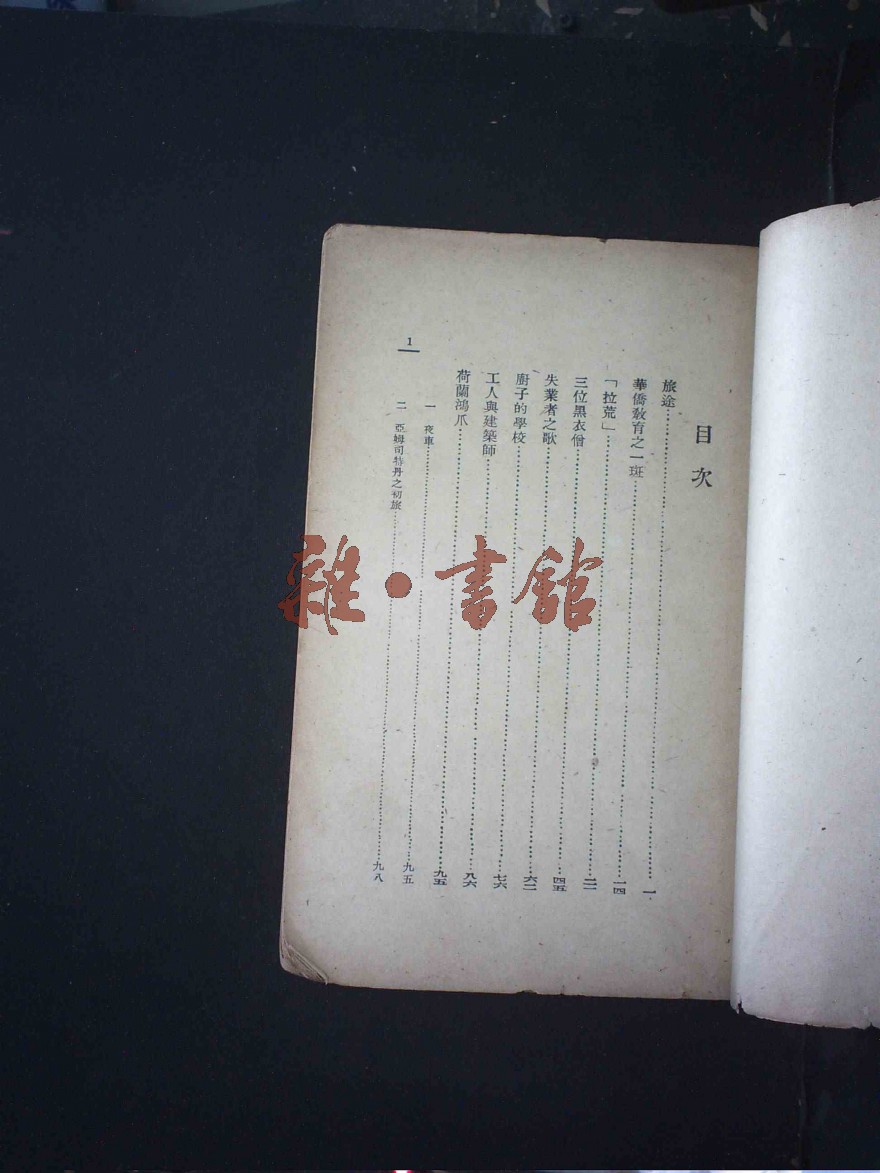 目次
旅途……一
華僑教育之一斑……一四
「拉荒」……二二
三位黑衣僧……四五
失業者之歌……六二
廚子的學校……七六
工人與建築師……八六
荷蘭鴻爪……九五
一 夜車……九五
二 亞姆司特丹之初旅……九八
1
雜·書館